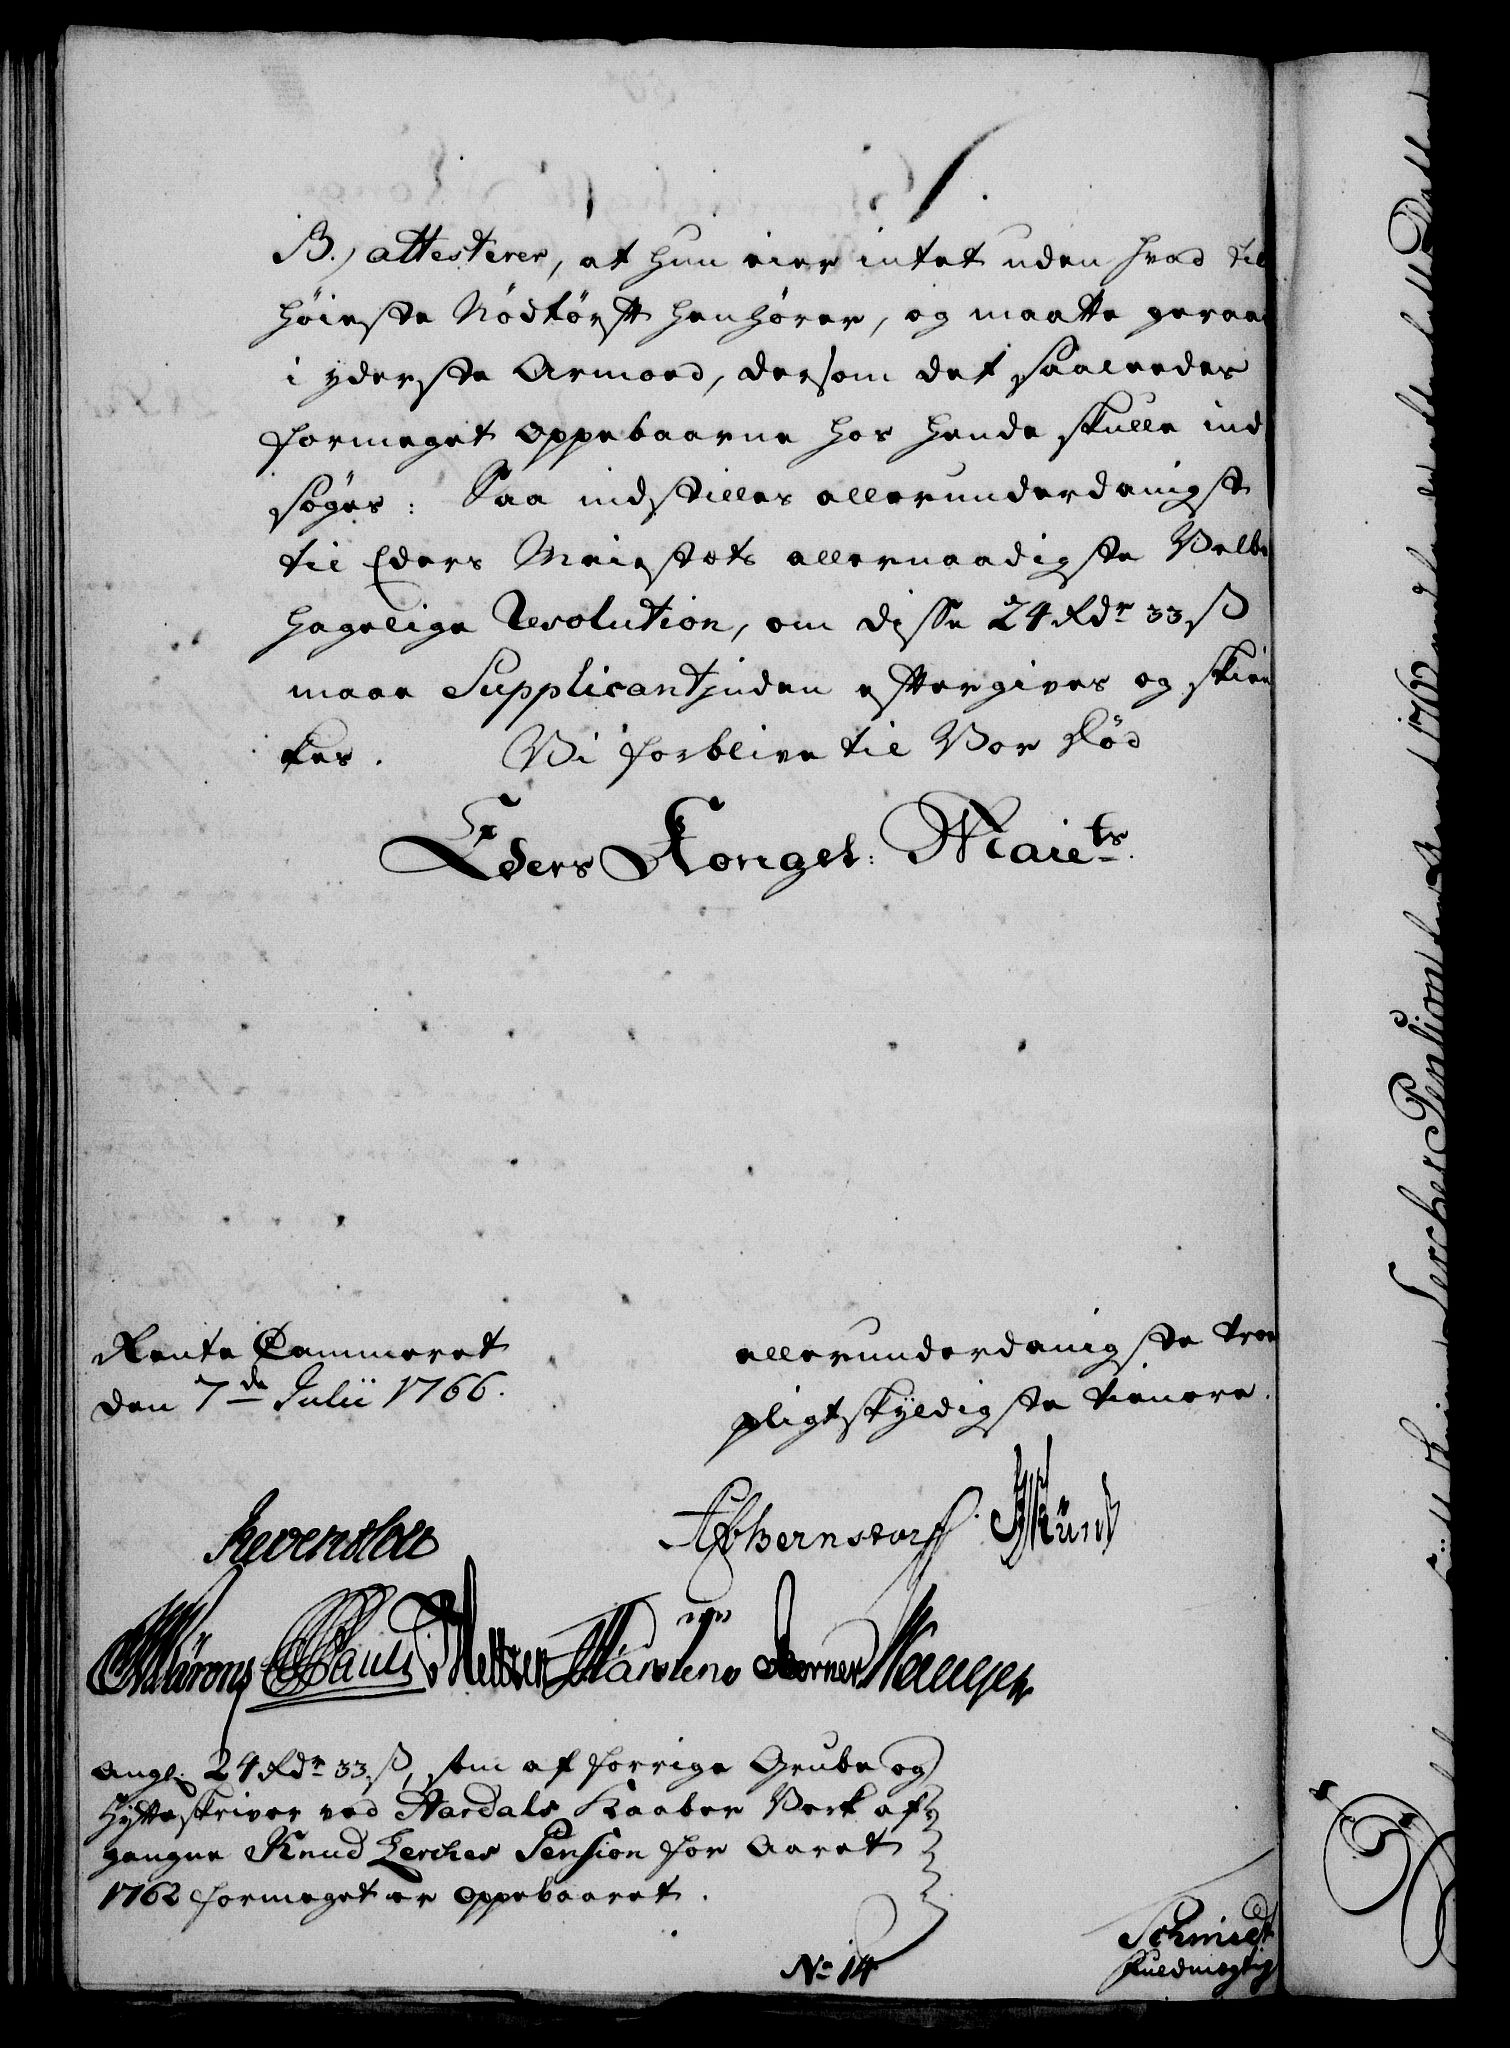 B.) attesterer, at hun eier intet uden hvad til
høieste Nødtørft henhører, og maatte geraa
i yderste Armoed, dersom det saaleedes
formeget oppebaarne hos hende skulle ind
søges: Saa indstilles allerunderdanigst
til Eders Maiestæts allernaadigste Velbe
hagelige Resolution, om disse 24 Rdr 33 ß
maae Supplicantinden eftergives og skien
kes. Vi forblive til Vor Død
Eders Kongel: Maiets.
Rente Cammeret
den 7de Julii 1766.
allerunderdanigste troe
pligtskyldigste tienere.
Reventlow
AP Bernstorff.
Pauli
Angl. 24 Rdr 33 ß, som af forrige Grube og
Hytteskriver ved Aardals Kaaber Verk af
gangne Knud Lerches Pension for Aaret
1762 formeget er oppebaaret.
No 14
Schmidt
fuldmægtig
Lerches Pension 1762